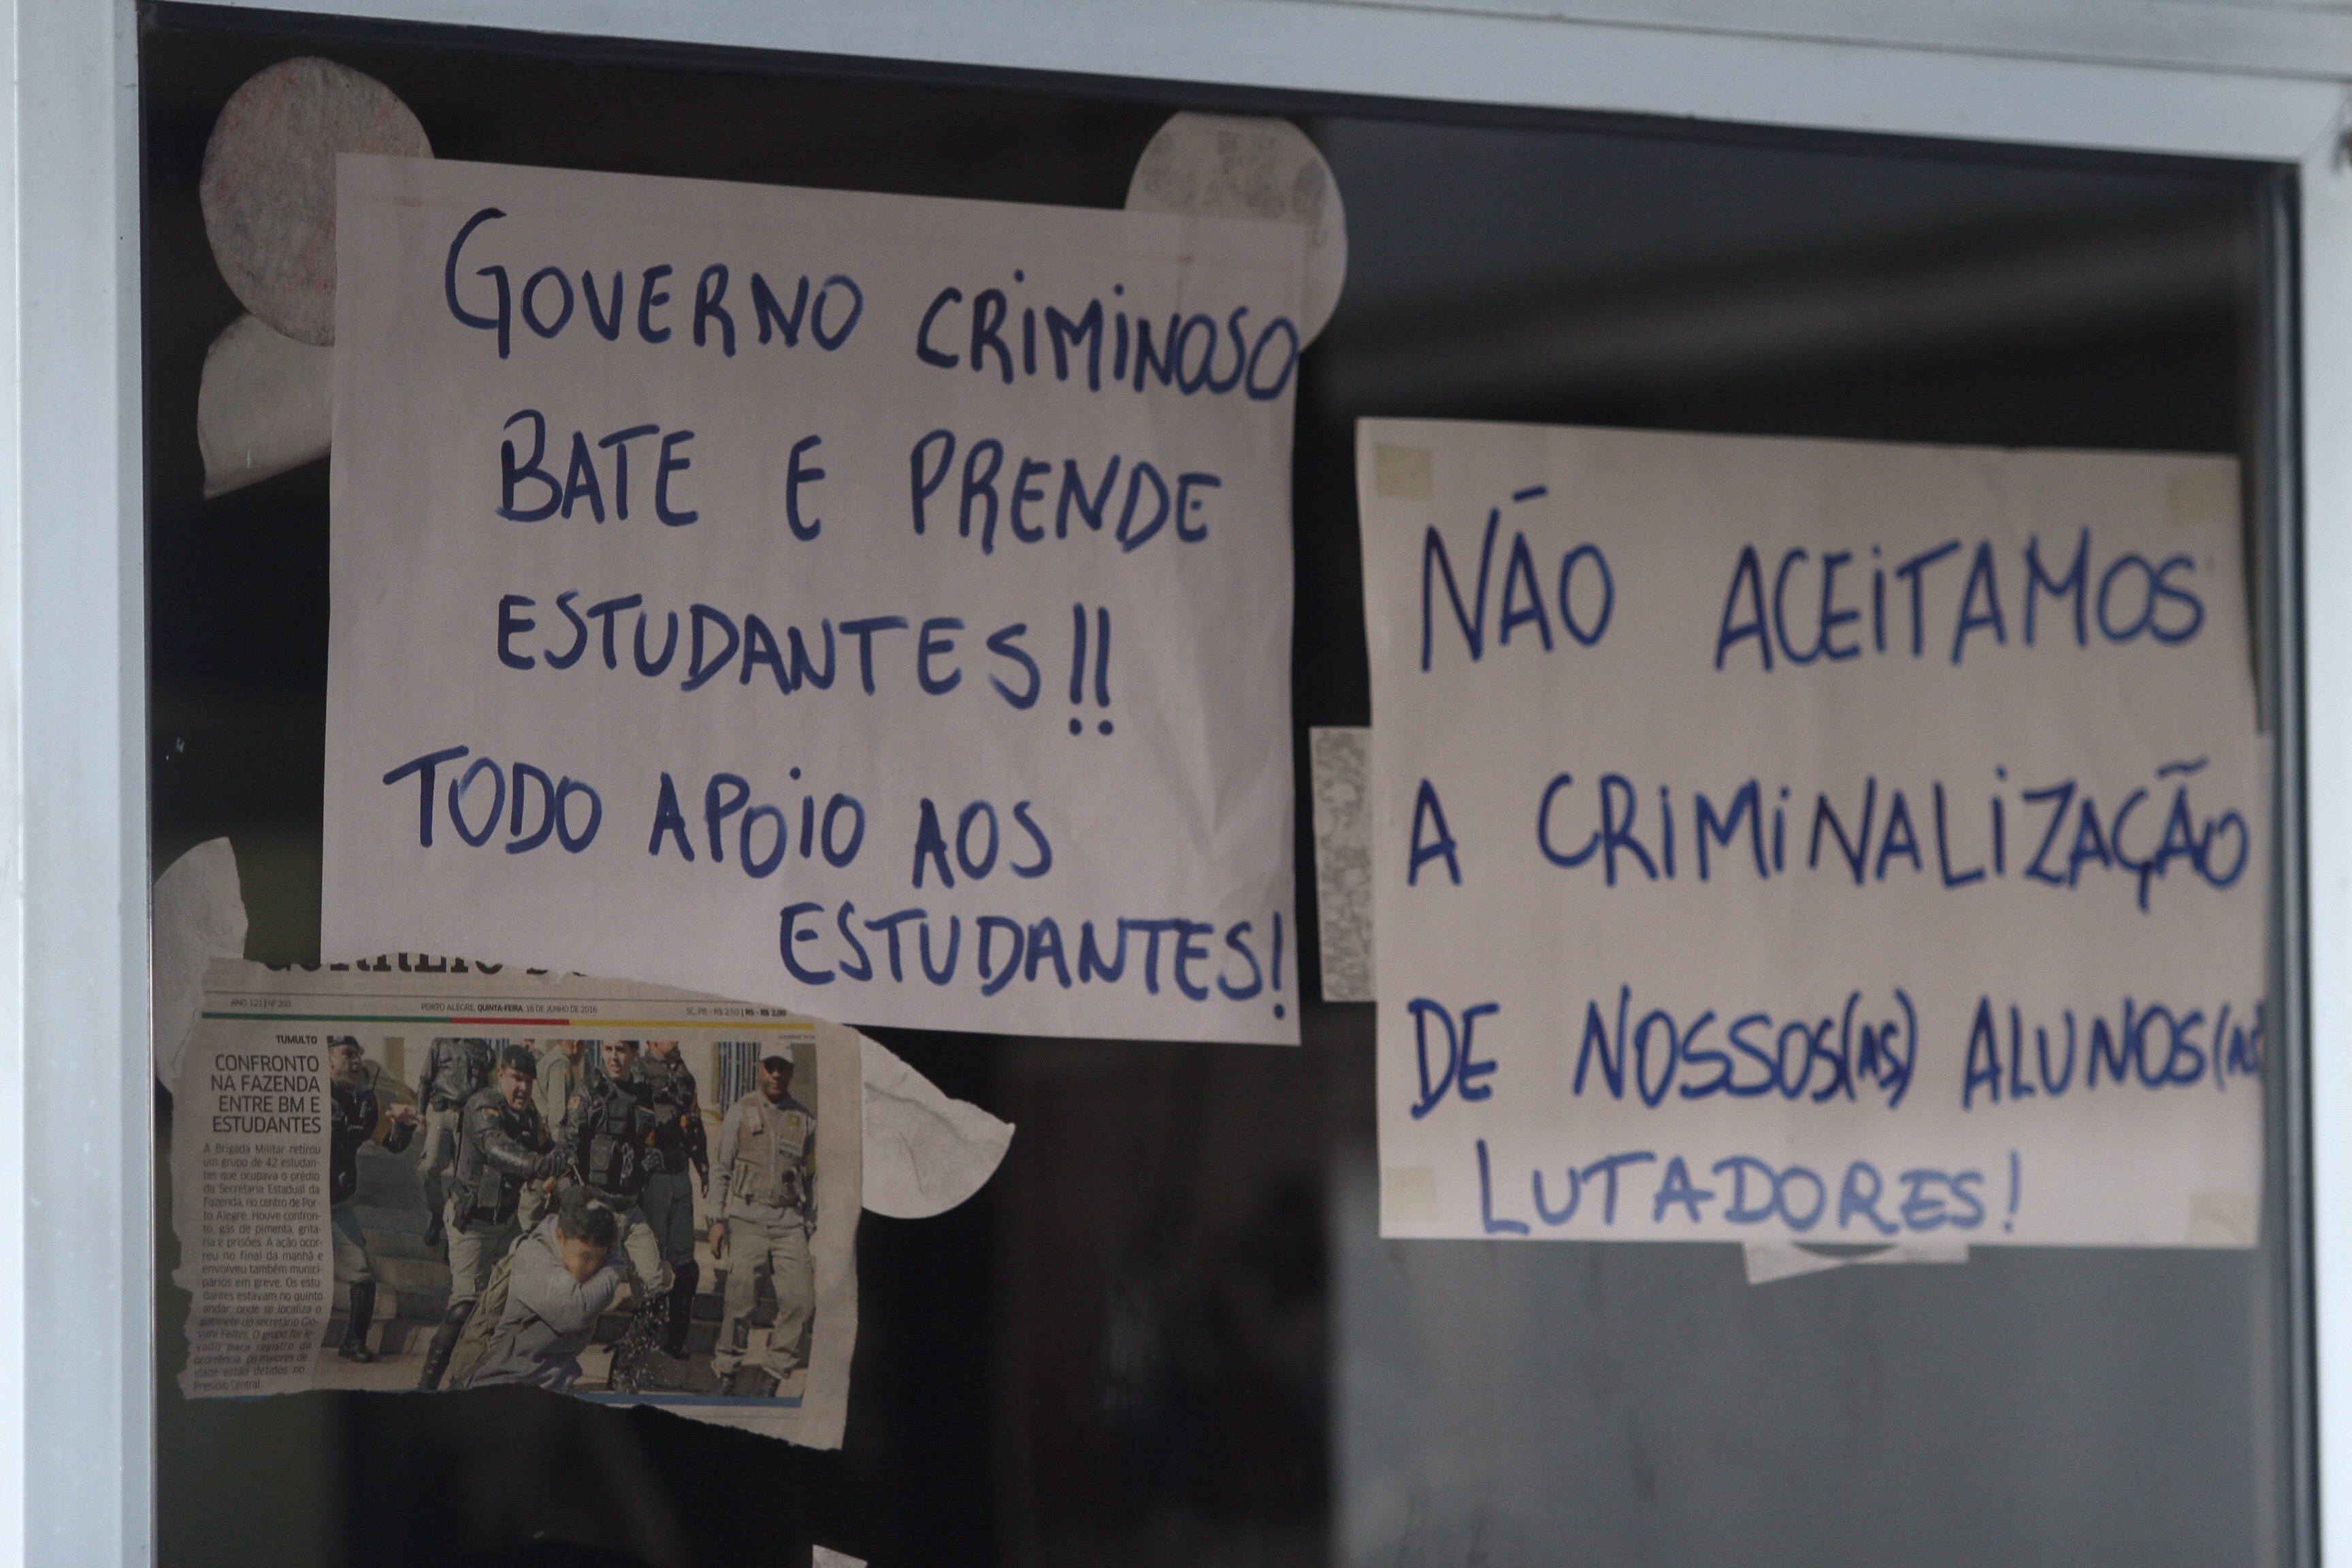 GOVERNO CRIMINOSO
BATE E PRENDE
ESTUDANTES!!
TODO APOIO AOS
ESTUDANTES!
NÃO ACEITAMOS
A CRIMINALIZAÇÃO
DE NOSSOS(AS) ALUNOS(AS
LUTADORES!
ANO 121 | Nº 260
PORTO ALEGRE, QUINTA-FEIRA, 16 DE JUNHO DE 2016
SC, PR - R$ 2,50 | RS - R$ 2,00
TUMULTO
CONFRONTO
NA FAZENDA
ENTRE BM E
ESTUDANTES
A Brigada Militar retirou
um grupo de 42 estudan-
tes que ocupava o prédio
da Secretaria Estadual da
Fazenda, no centro de Por-
to Alegre. Houve confron-
to, gás de pimenta, grita-
ria e prisões. A ação ocor-
reu no final da manhã e
envolveu também munici-
pários em greve. Os estu-
dantes estavam no quinto
andar, onde se localiza o
gabinete do secretário Gio-
vani Feltes. O grupo foi le-
vado para registro da
ocorrência. Os maiores de
idade estão detidos no
Presídio Central.